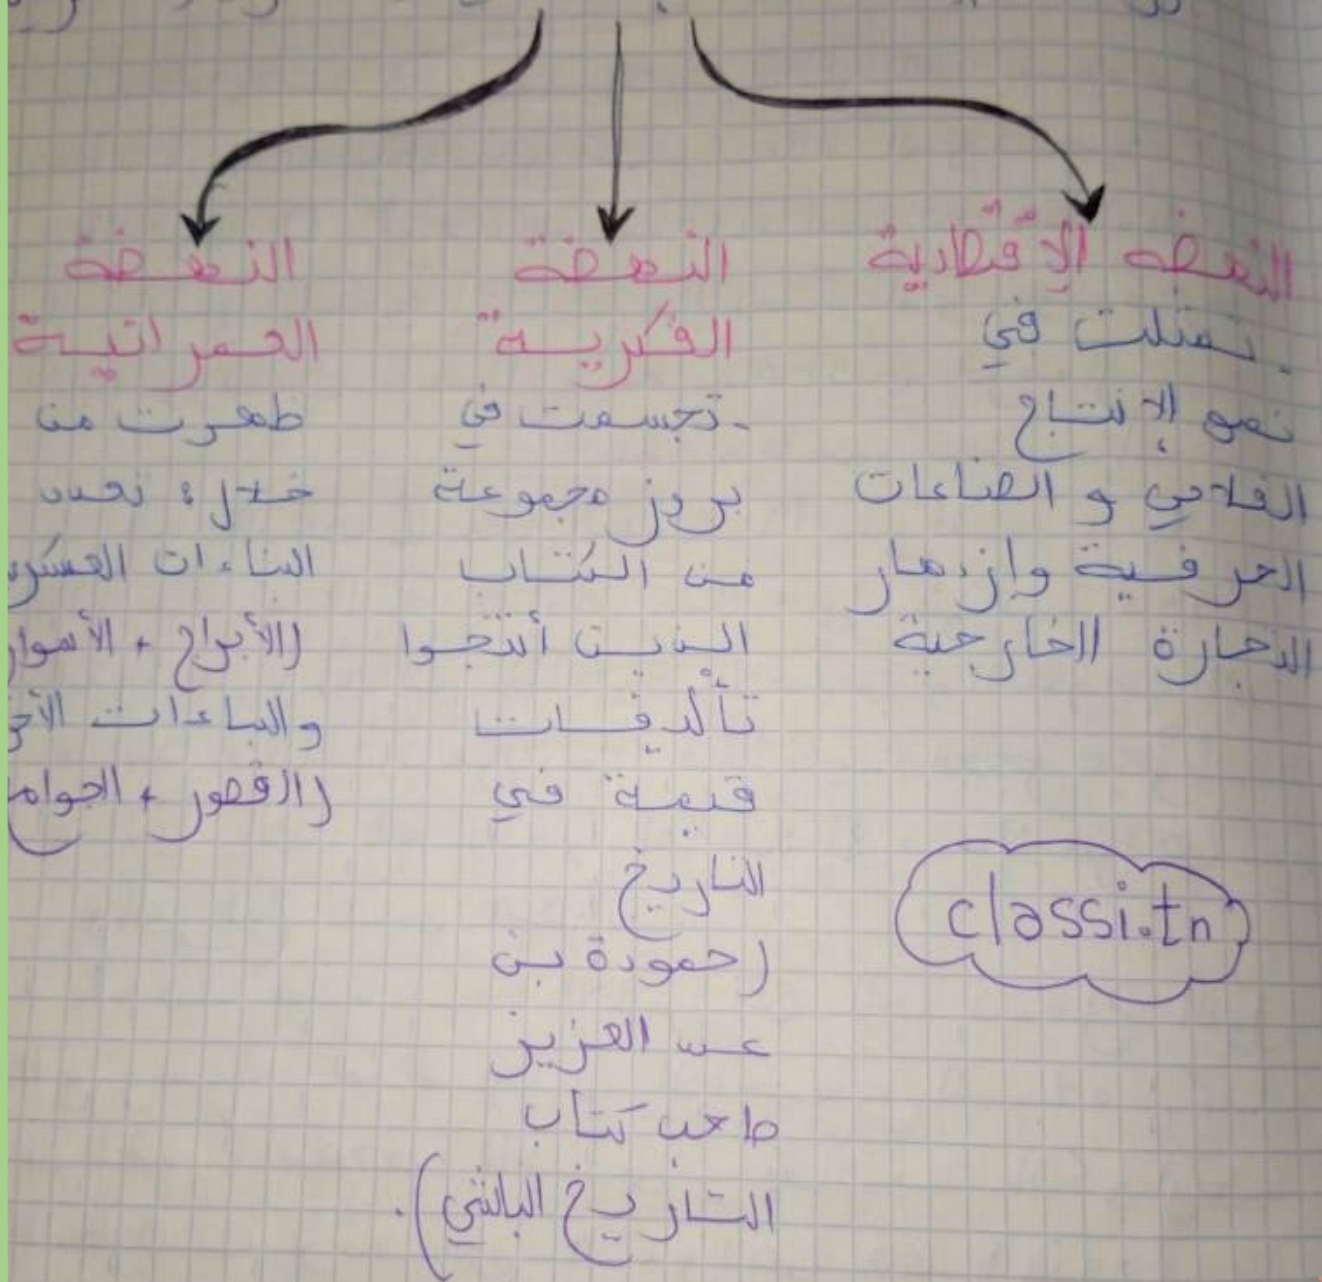 النهضة الإقتصادية
تمثلت في
نمو الإنتاج
الفلاحي و الصناعات
الحرفية وازدهار
التجارة الخارجية
النهضة
الفكرية
-تجسمت في
بروز مجموعة
من الكتاب
الذين أنتجوا
تأليفات
قيمة في
التاريخ
(حمودة بن
عبد العزيز
صاحب كتاب
التاريخ الباشي).
النهضة
العمرانية
ظهرت من
خلال: تعدد
البناءات
(الأبراج +
والبناءات
(القصور +
classi.tn